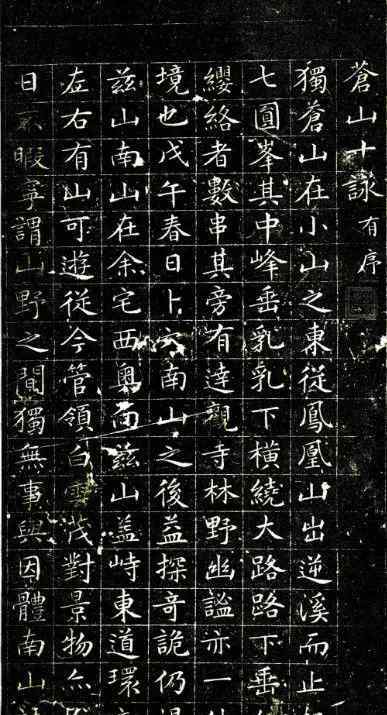 蒼山十詠有序
獨蒼山在小山之東從鳳凰山出逆溪而止
七圓峯其中峰垂乳乳下橫繞大路路下垂
纓絡者數串其旁有達觀寺林野幽謐亦一
境也戊午春日卜穴南山之後益探奇詭仍
茲山南山在余宅西奧而茲山益峙東道環
左右有山可遊從今管領白雲茂對景物亦
日不暇謂山野之間獨無事與因體南山